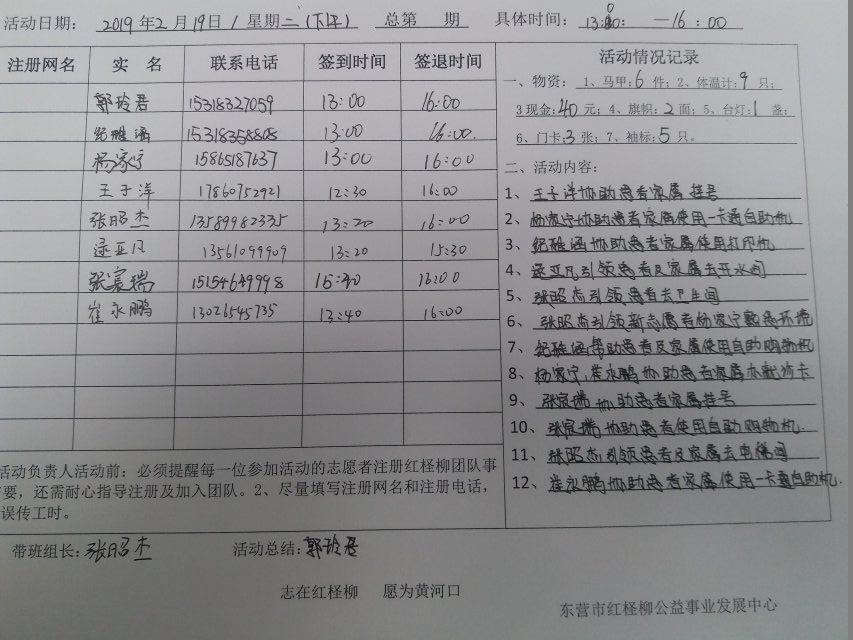 活动日期： 2019年2月19日/星期二(下午) 总第 期 具体时间： 13:00: —16：00
注册网名 实 名 联系电话 签到时间 签退时间
郭玲君 15318327059 13:00 16:00
纪雅涵 15318358808 13:00 16:00.
杨家宁 15865187637 13:00 16:00
王子洋 17860752921 12:30 16:00
张昭杰 13589982335 13:20 16:00
逯亚凡 13561099909 13:20 15:30
张宸瑞 15154649998 16:00
崔永鹏 13026545735 13:40 16:00
活动情况记录
一、物资： 1、马甲：6 件；2、体温计：9 只；
3 现金：40 元；4、旗帜：2 面；5、台灯：1 盏；
6、门卡：3 张；7、袖标：5 只。
二、活动内容：
1、王子洋协助患者家属挂号
2、杨家宁协助患者家属使用一卡通自助机
3、纪雅涵协助患者家属使用打印机
4、逯亚凡引领患者及家属去开水间
5、张昭杰引领患者去卫生间
6、张昭杰引领新志愿者杨家宁熟悉环境
7、纪雅涵帮助患者及家属使用自助购物机
8、杨家宁,崔永鹏协助患者家属办就诊卡
9、张宸瑞协助患者家属挂号
10、张宸瑞协助患者使用自助购物机.
11、张昭杰引领患者及家属去电梯间
12、崔永鹏协助患者家属使用一卡通自助机.
活动负责人活动前：必须提醒每一位参加活动的志愿者注册红柽柳团队事
要，还需耐心指导注册及加入团队。2、尽量填写注册网名和注册电话，
误传工时。
带班组长：张昭杰 活动总结：郭玲君
志在红柽柳 愿为黄河口
东营市红柽柳公益事业发展中心